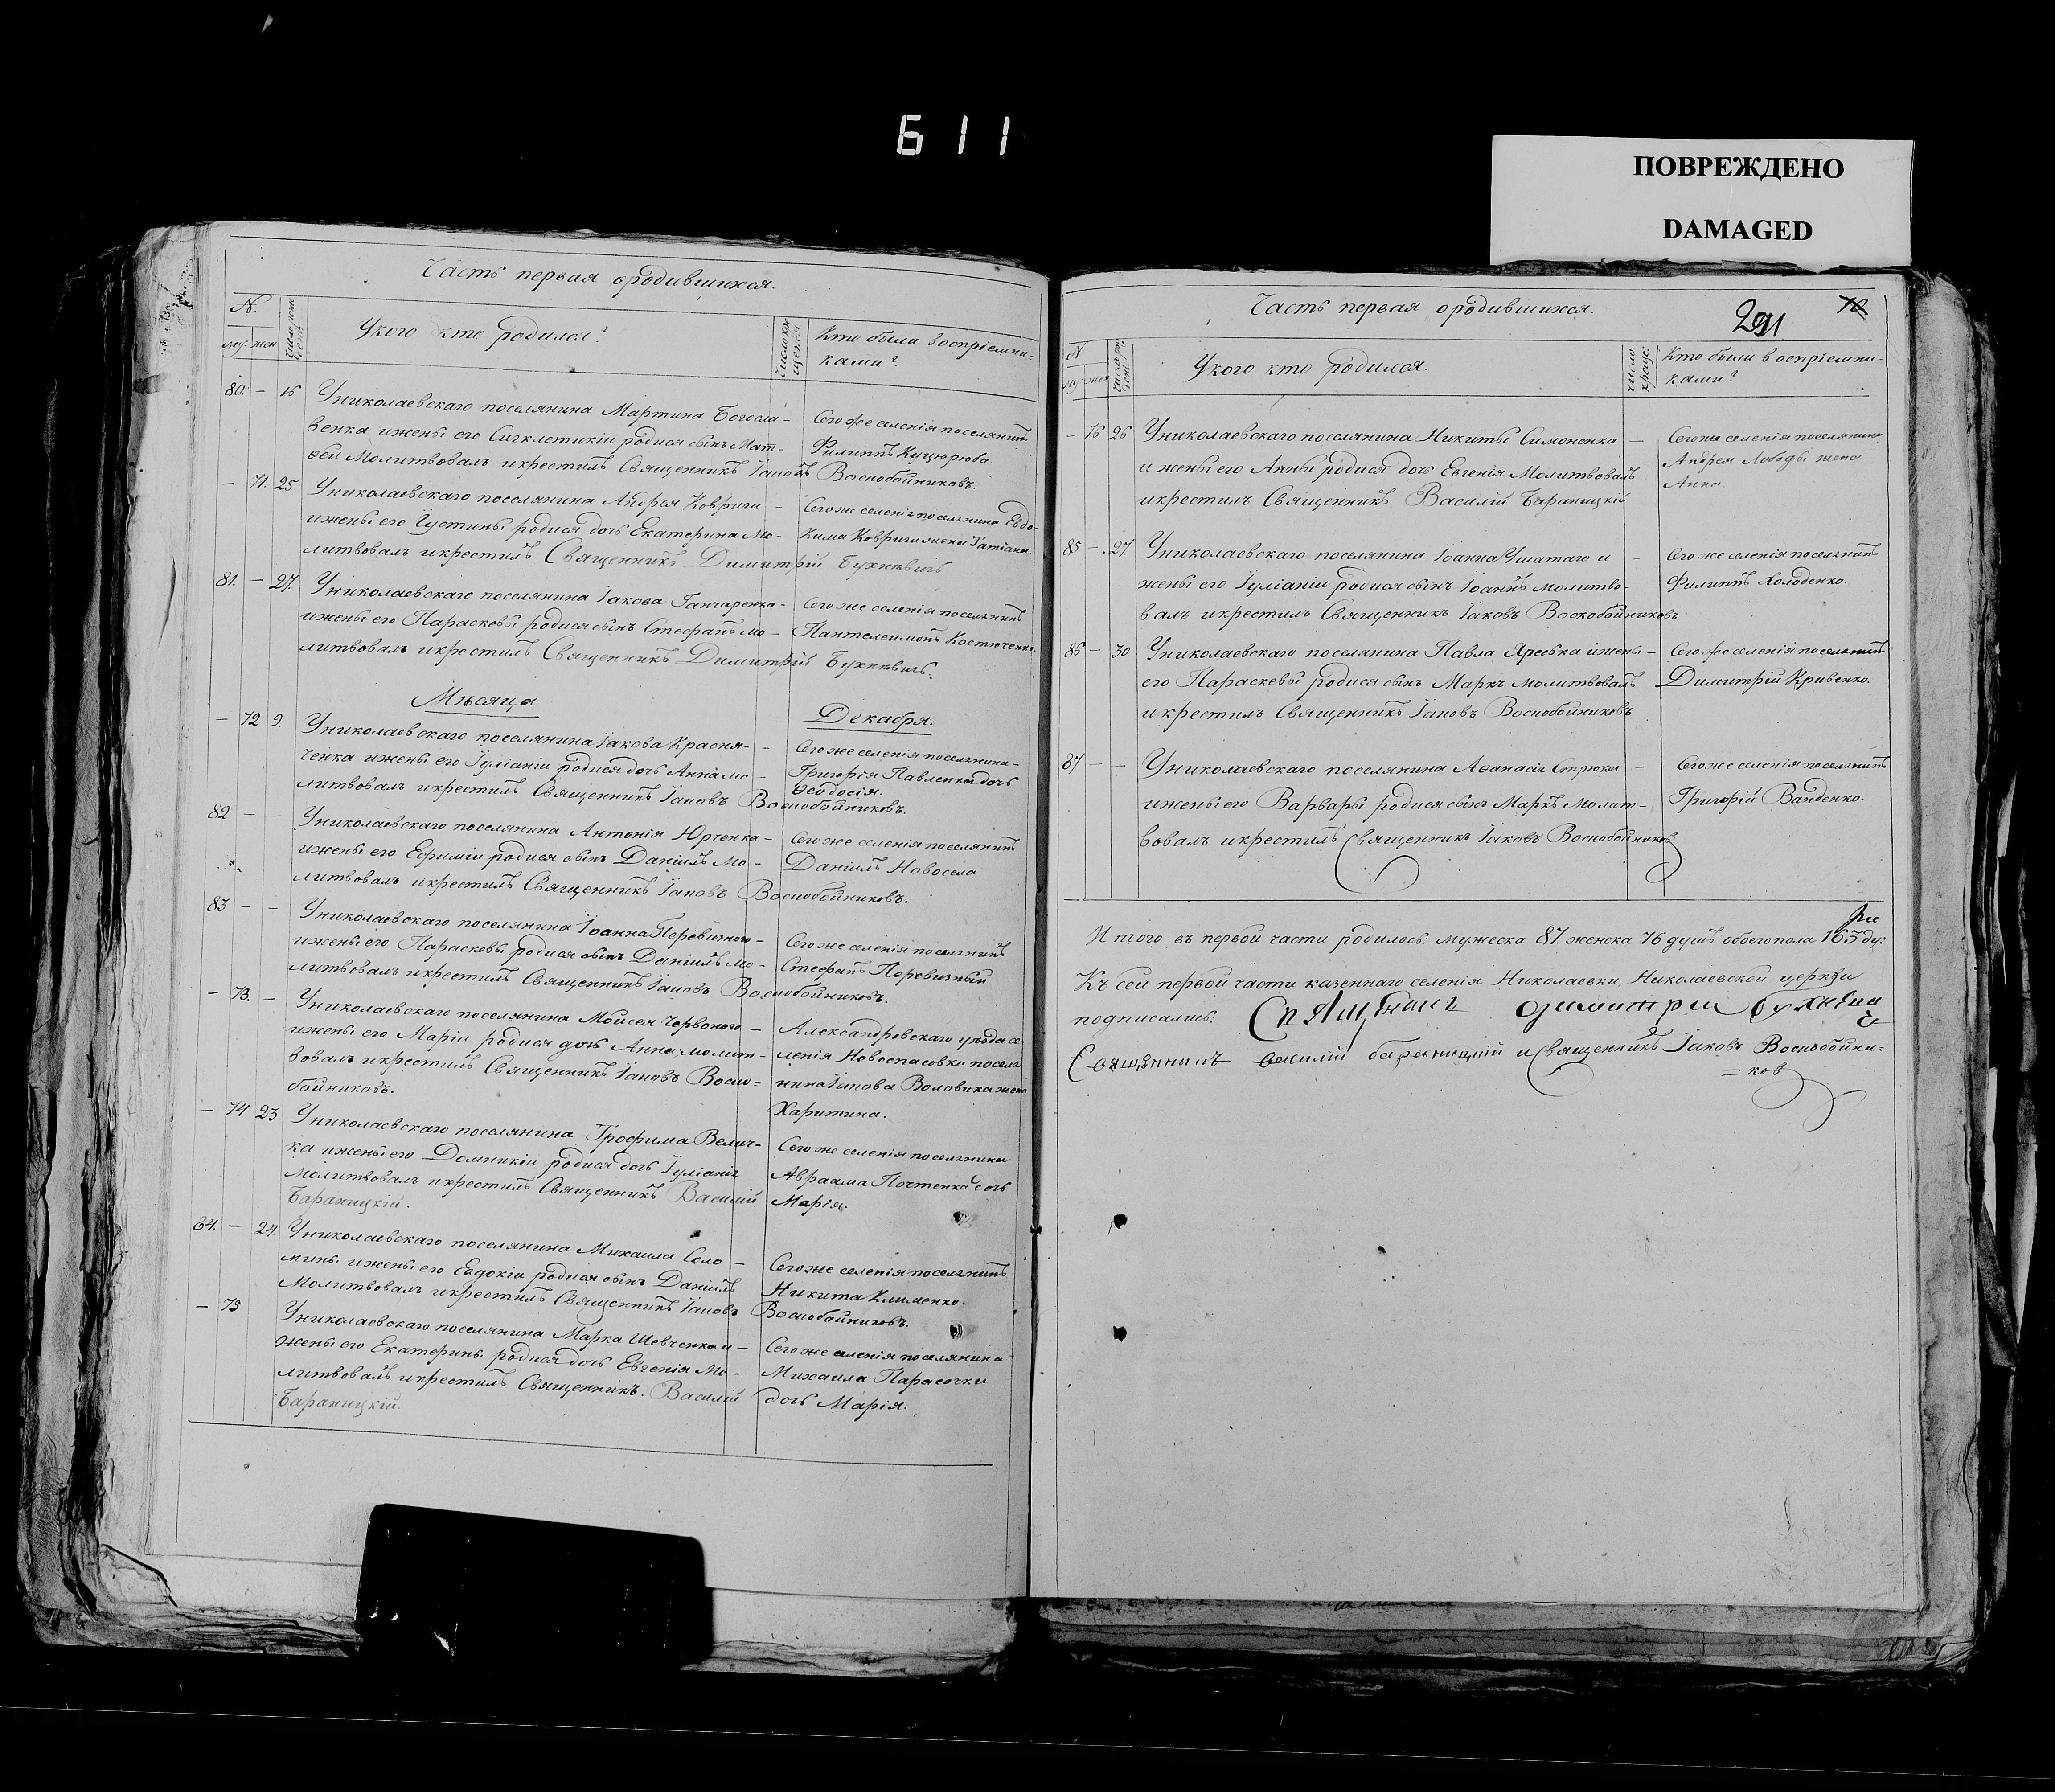 611
ПОВРЕЖДЕНО
DAMAGED
Часть первая ородившихся.
№.
му. жен
Укого кто родился?
Кто были воспріемни-
ками?
80. — 16 Униколаевскаго поселянина Мартина Богосла-
венка ижены его Сигклетикіи родися сынъ Мат-
ѳей Молитвовалъ икрестилъ Священникъ Іаковъ Воскобойниковъ.
Сегоже селенія поселянинъ
Филиппъ
— 71. 25 Униколаевскаго поселянина Андрея Ковриги
ижены его Іустины родися дочь Екатерина Мо-
литвовалъ икрестилъ Священникъ Димитрій Бухневичъ
Сегоже селенія поселянина Евдо-
кима Ковриги жена Татіана.
81. — 27. Униколаевскаго поселянина Іакова Ганчаренка
ижены его Параскевы родися сынъ Стефанъ мо-
литвовалъ икрестилъ Священникъ Димитрій Бухневичъ.
Сегоже селенія поселянинъ
Пантелеимонъ Костюченко.
Мѣсяца Декабря.
— 72 9. Униколаевскаго поселянина Іакова Красня-
ченка ижены его Іуліаніи родися дочь Анна мо-
литвовалъ икрестилъ Священникъ Іаковъ Воскобойниковъ.
Сегоже селенія поселянина
Григорія Павленка дочь
Ѳеодосія.
82 — — Униколаевскаго поселянина Антонія Юрченка
ижены его Ефиміи родися сынъ Даніилъ Мо-
литвовалъ икрестилъ Священникъ Іаковъ Воскобойниковъ.
Сегоже селенія поселянинъ
Даніилъ Новосела
83 — — Униколаевскаго поселянина Іоанна Перевизного
ижены его Парасковы родися сынъ Даніилъ Мо-
литвовалъ икрестилъ Священникъ Іаковъ Воскобойниковъ.
Сегоже селенія поселянинъ
Стефанъ Перевизный
— 73. — Униколаевскаго поселянина Моисея Червоного
ижены его Маріи родися дочь Анна молит-
вовалъ икрестилъ Священникъ Іаковъ Воско-
бойниковъ.
Александровскаго уѣзда се-
ленія Новоспасовки поселя
нина Іакова Воловика жена
Харитина.
— 74 23 Униколаевскаго поселянина Трофима Велич-
ка ижены его Домникіи родися дочь Іуліанія
Молитвовалъ икрестилъ Священникъ Василій
Бараницкій.
Сегоже селенія поселянина
Авраама Почтенка дочь
Марія.
84. — 24. Униколаевскаго поселянина Михаила Соло
мины ижены его Евдокіи родися сынъ Даніилъ
Молитвовалъ икрестилъ Священникъ Іаковъ Воскобойниковъ.
Сегоже селенія поселянинъ
Никита Клименко.
— 75 Униколаевскаго поселянина Марка Шевченка и
жены его Екатерины родися дочь Евгенія Мо-
литвовалъ икрестилъ Священникъ. Василій
Бараницкій.
Сегоже селенія поселянина
Михаила Парасочки
дочь Марія.
Часть первая ородившихся.
291
№
му. жен
Укого кто родился.
Кто были воспріемни-
ками?
— 76 26 Униколаевскаго поселянина Никиты Симоненка
и жены его Анны родися дочь Евгенія Молитвовалъ
икрестилъ Священникъ Василій Бараницкій
Сегоже селенія поселянина
Андрея Лободы жена
Анна
85 — 27. Униколаевскаго поселянина Іоанна Ушатаго и
жены его Іуліаніи родися сынъ Іоаннъ молитво-
валъ икрестилъ Священникъ Іаковъ Воскобойниковъ
Сегоже селенія поселянинъ
Филиппъ Холоденко.
86 — 30 Униколаевскаго поселянина Павла Яреська ижены
его Параскевы родися сынъ Маркъ молитвовалъ
икрестилъ Священникъ Іаковъ Воскобойниковъ
Сегоже селенія поселянинъ
Димитрій Кривенко.
87 — — Униколаевскаго поселянина Аѳанасія Стрюка
ижены его Варвары родися сынъ Маркъ Молит-
вовалъ икрестилъ Священникъ Іаковъ Воскобойниковъ
Сегоже селенія поселянинъ
Григорій Ванденко.
Итого въ первой части родилось: мужеска 87. женска 76 душъ обоегопола 163 ду:
Къ сей первой части казеннаго селенія Николаевки, Николаевской церкви
подписались: Священникъ Димитрій Бухневичъ
Священникъ Василій Бараницкій и Священникъ Іаковъ Воскобойни-
ковъ